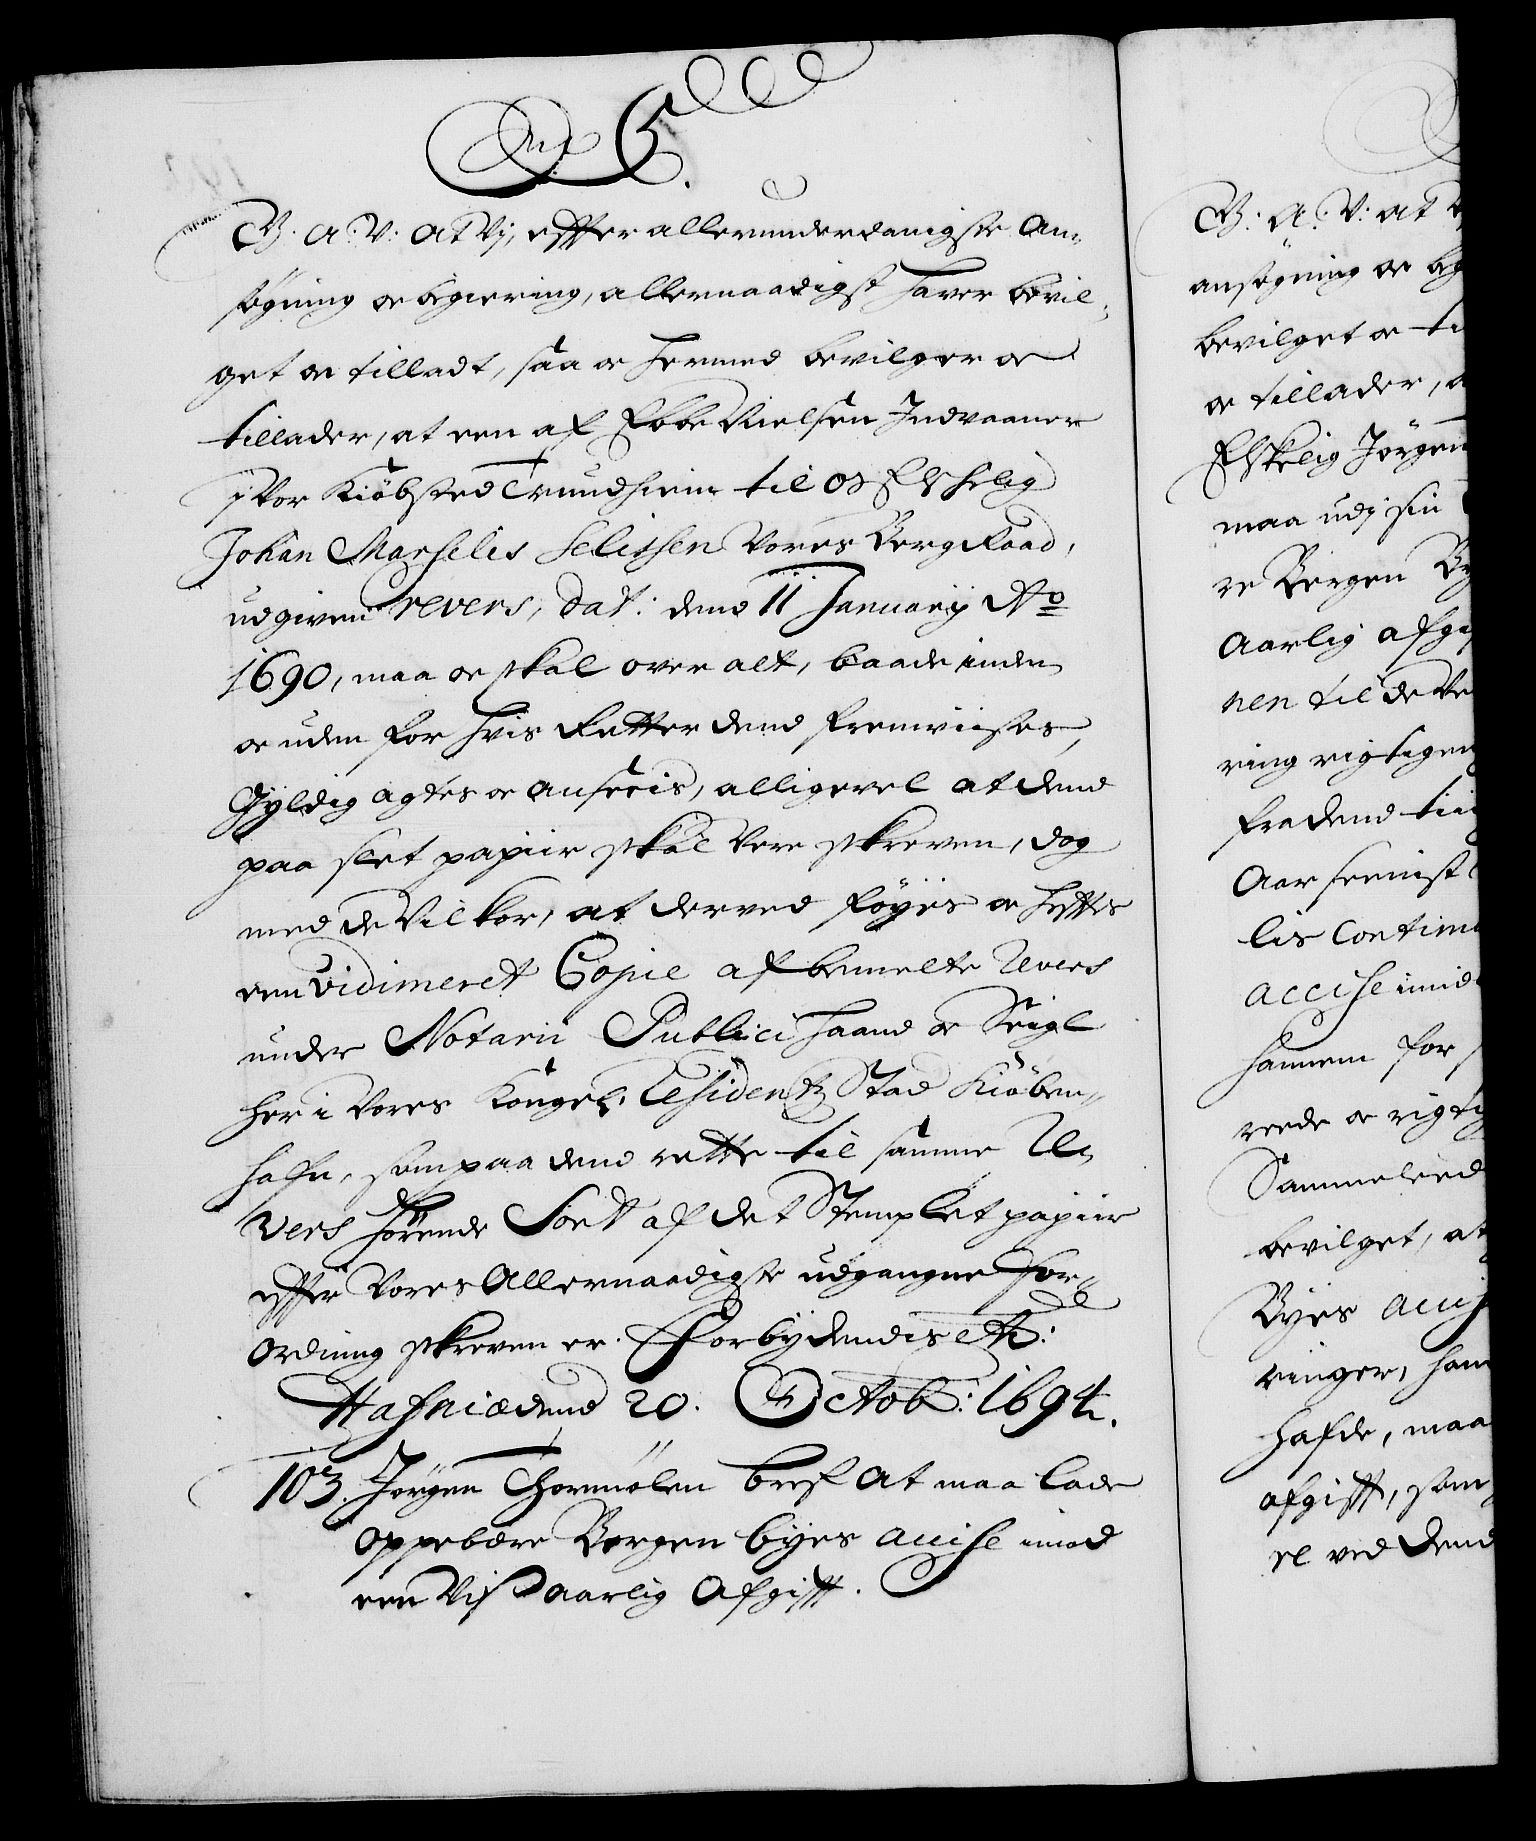 C5.
G. A. V: at Vj, effter allerunderdanigste an-
søgning oc begiering, allernaadigst hafver bevil-
get oc tilladt, saa oc hermed bevilger oc
tillader, at een af Ebbe Nielsen Indvaaner
i Vor Kiøbsted Trundhiem til os Elskelig
Johan Marselis Selissen Vores BergRaad,
udgiven revers, dat: dend 11 Januarij Ao
1690, maa oc skal over alt, baade inden
oc uden for hvis Retter dend fremviises,
Gyldig agtes oc ansees, alligevel at dend
paa slet papiir skal vere skreven, dog
med de Vilkor, at derved føyes oc hefftes
een vidimeret Copie af bemelte Revers
under Notarii Publici haand oc Seigl
her i Vores Kongel: Residentz Stad Kiøben-
hafn, som paa dend rette til samme Re-
vers hørende Sort af det Stemplet papiir
effter Vores Allernaadigste udgangne For-
ordning skreven er. Forbydendis etc:
Hafniæ dend 20. Octob: 1694.
103. Jørgen Thormølen bref at maa lade
oppebære Bergen byes accise imod
een Viss aarlig Afgifft.
G: A: V: at
ansøgning oc beg
bevilget oc ti
oc tillader, a
Elskelig Jørgen
maa udj sin
re Bergen By
Aarlig afgi
nen til de Ve
ring rigtigen
fra dend tiid
Aar seenist
lis Continu
accise imid
hannem for
reede oc rigtig
Sammeleed
bevilget, at
Byes accis
ringer, ham
hafde, maa
afgifft, som
el ved dend